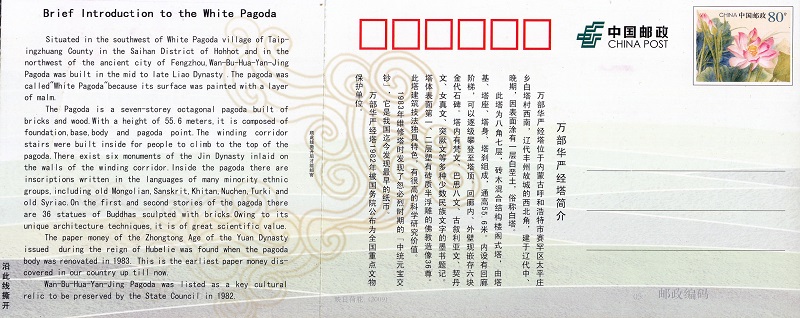 Brief Introduction to the White Pagoda
Situated in the southwest of White Pagoda village of Taip-
ingzhuang County in the Saihan District of Hohhot and in the
northwest of the ancient city of Fengzhou,Wan-Bu-Hua-Yan-Jing
Pagoda was built in the mid to late Liao Dynasty .The pagoda was
called"White Pagoda"because its surface was painted with a layer
of malm.
The Pagoda is a seven-storey octagonal pagoda built of
bricks and wood.With a height of 55.6 meters,it is composed of
foundation,base,body and pagoda point.The winding corridor
stairs were built inside for people to climb to the top of the
pagoda.There exist six monuments of the Jin Dynasty inlaid on
the walls of the winding corridor.Inside the pagoda there are
inscriptions written in the languages of many minority ethnic
groups,including old Mongolian,Sanskrit,Khitan,Nuchen,Turki and
old Syriac.On the first and second stories of the pagoda there
are 36 statues of Buddhas sculpted with bricks.Owing to its
unique architecture techniques,it is of great scientific value.
The paper money of the Zhongtong Age of the Yuan Dynasty
issued during the reign of Hubelie was found when the pagoda
body was renovated in 1983. This is the earliest paper money dis-
covered in our country up till now.
Wan-Bu-Hua-Yan-Jing Pagoda was listed as a key cultural
relic to be preserved by the State Council in 1982.
沿此线撕开
中国邮政
CHINA POST
中国邮政
CHINA
80分
万部华严经塔简介
万部华严经塔位于内蒙古呼和浩特市赛罕区太平庄
乡白塔村西南,辽代丰州故城的西北角,建于辽代中、
晚期,因表面涂有一层白垩土,俗称白塔。
此塔为八角七层,砖木混合结构楼阁式塔,由塔
基、塔座、塔身、塔刹组成,通高55.6米,内设有回廊
阶梯,可以逐级攀登至塔顶,回廊内、外壁现嵌存六块
金代石碑,塔内有梵文、巴思八文、古叙利亚文、契丹
文、女真文、突厥文等多种少数民族文字的墨书题记。
塔体表面第一、二层塑有砖质半浮雕的佛教造像36尊。
此塔建筑技法独具特色,有很高的科学研究价值。
1983年维修塔时发现了忽必烈时期的「中统元宝交
钞」,它是我国迄今发现最早的纸币。
万部华严经塔1982年被国务院公布为全国重点文物
保护单位。
邮政编码